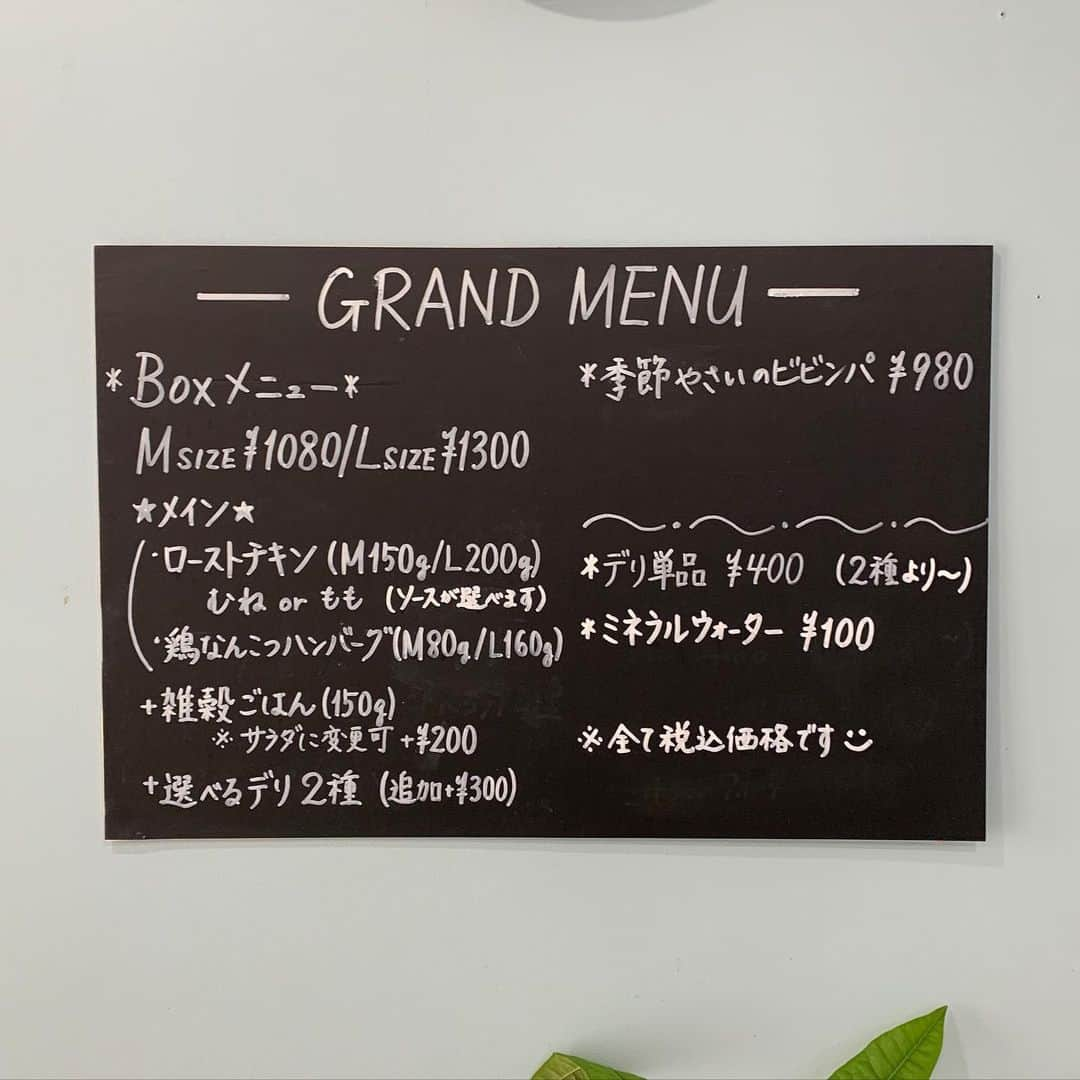 GRAND MENU
*Boxメニュー*
M SIZE ¥1080/L SIZE ¥1300
★メイン★
・ローストチキン (M150g/L200g)
むね or もも (ソースが選べます)
・鶏なんこつハンバーグ(M80g/L160g)
+雑穀ごはん(150g)
※サラダに変更可 +¥200
+選べるデリ2種 (追加+¥300)
*季節やさいのビビンパ ¥980
*デリ単品 ¥400 (2種より〜)
*ミネラルウォーター ¥100
※全て税込価格です